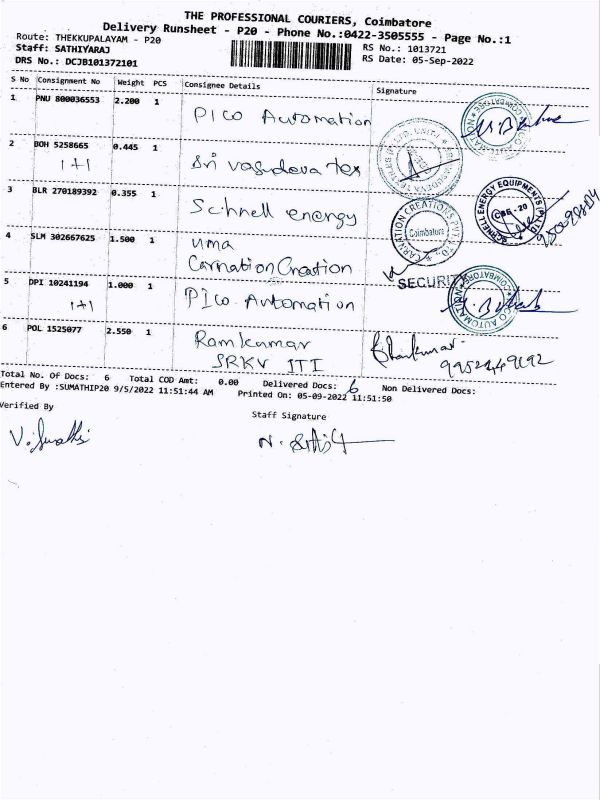 THE PROFESSIONAL COURIERS, Coimbatore
Delivery Runsheet - P20 - Phone No.:0422-3505555 - Page No.:1
Route: THEKKUPALAYAM - P20
RS No.: 1013721
Staff: SATHIYARAJ
RS Date: 05-Sep-2022
DRS No.: DCJB101372101
S No Consignment No Weight PCS Consignee Details Signature
1 PNU 800036553 2.200 1 PICO Automation
2 BOH 5258665 0.445 1 Sri vasudeva tex
1+1
3 BLR 270189392 0.355 1 Schnell energy
SCHNELL ENERGY EQUIPMENTS (P) LTD
CBE - 20
4 SLM 302667625 1.500 1 uma
Carnation Creation
CARNATION CREATIONS PVT LTD
Coimbatore
SECURITY
5 DPI 10241194 1.000 1 PICO. Automation
1+1
PICO AUTOMATION COIMBATORE
6 POL 1525077 2.550 1 Ramkumar
SRKV ITI
Total No. Of Docs: 6 Total COD Amt: 0.00 Delivered Docs: 6 Non Delivered Docs:
Entered By :SUMATHIP20 9/5/2022 11:51:44 AM Printed On: 05-09-2022 11:51:50
Verified By
Staff Signature